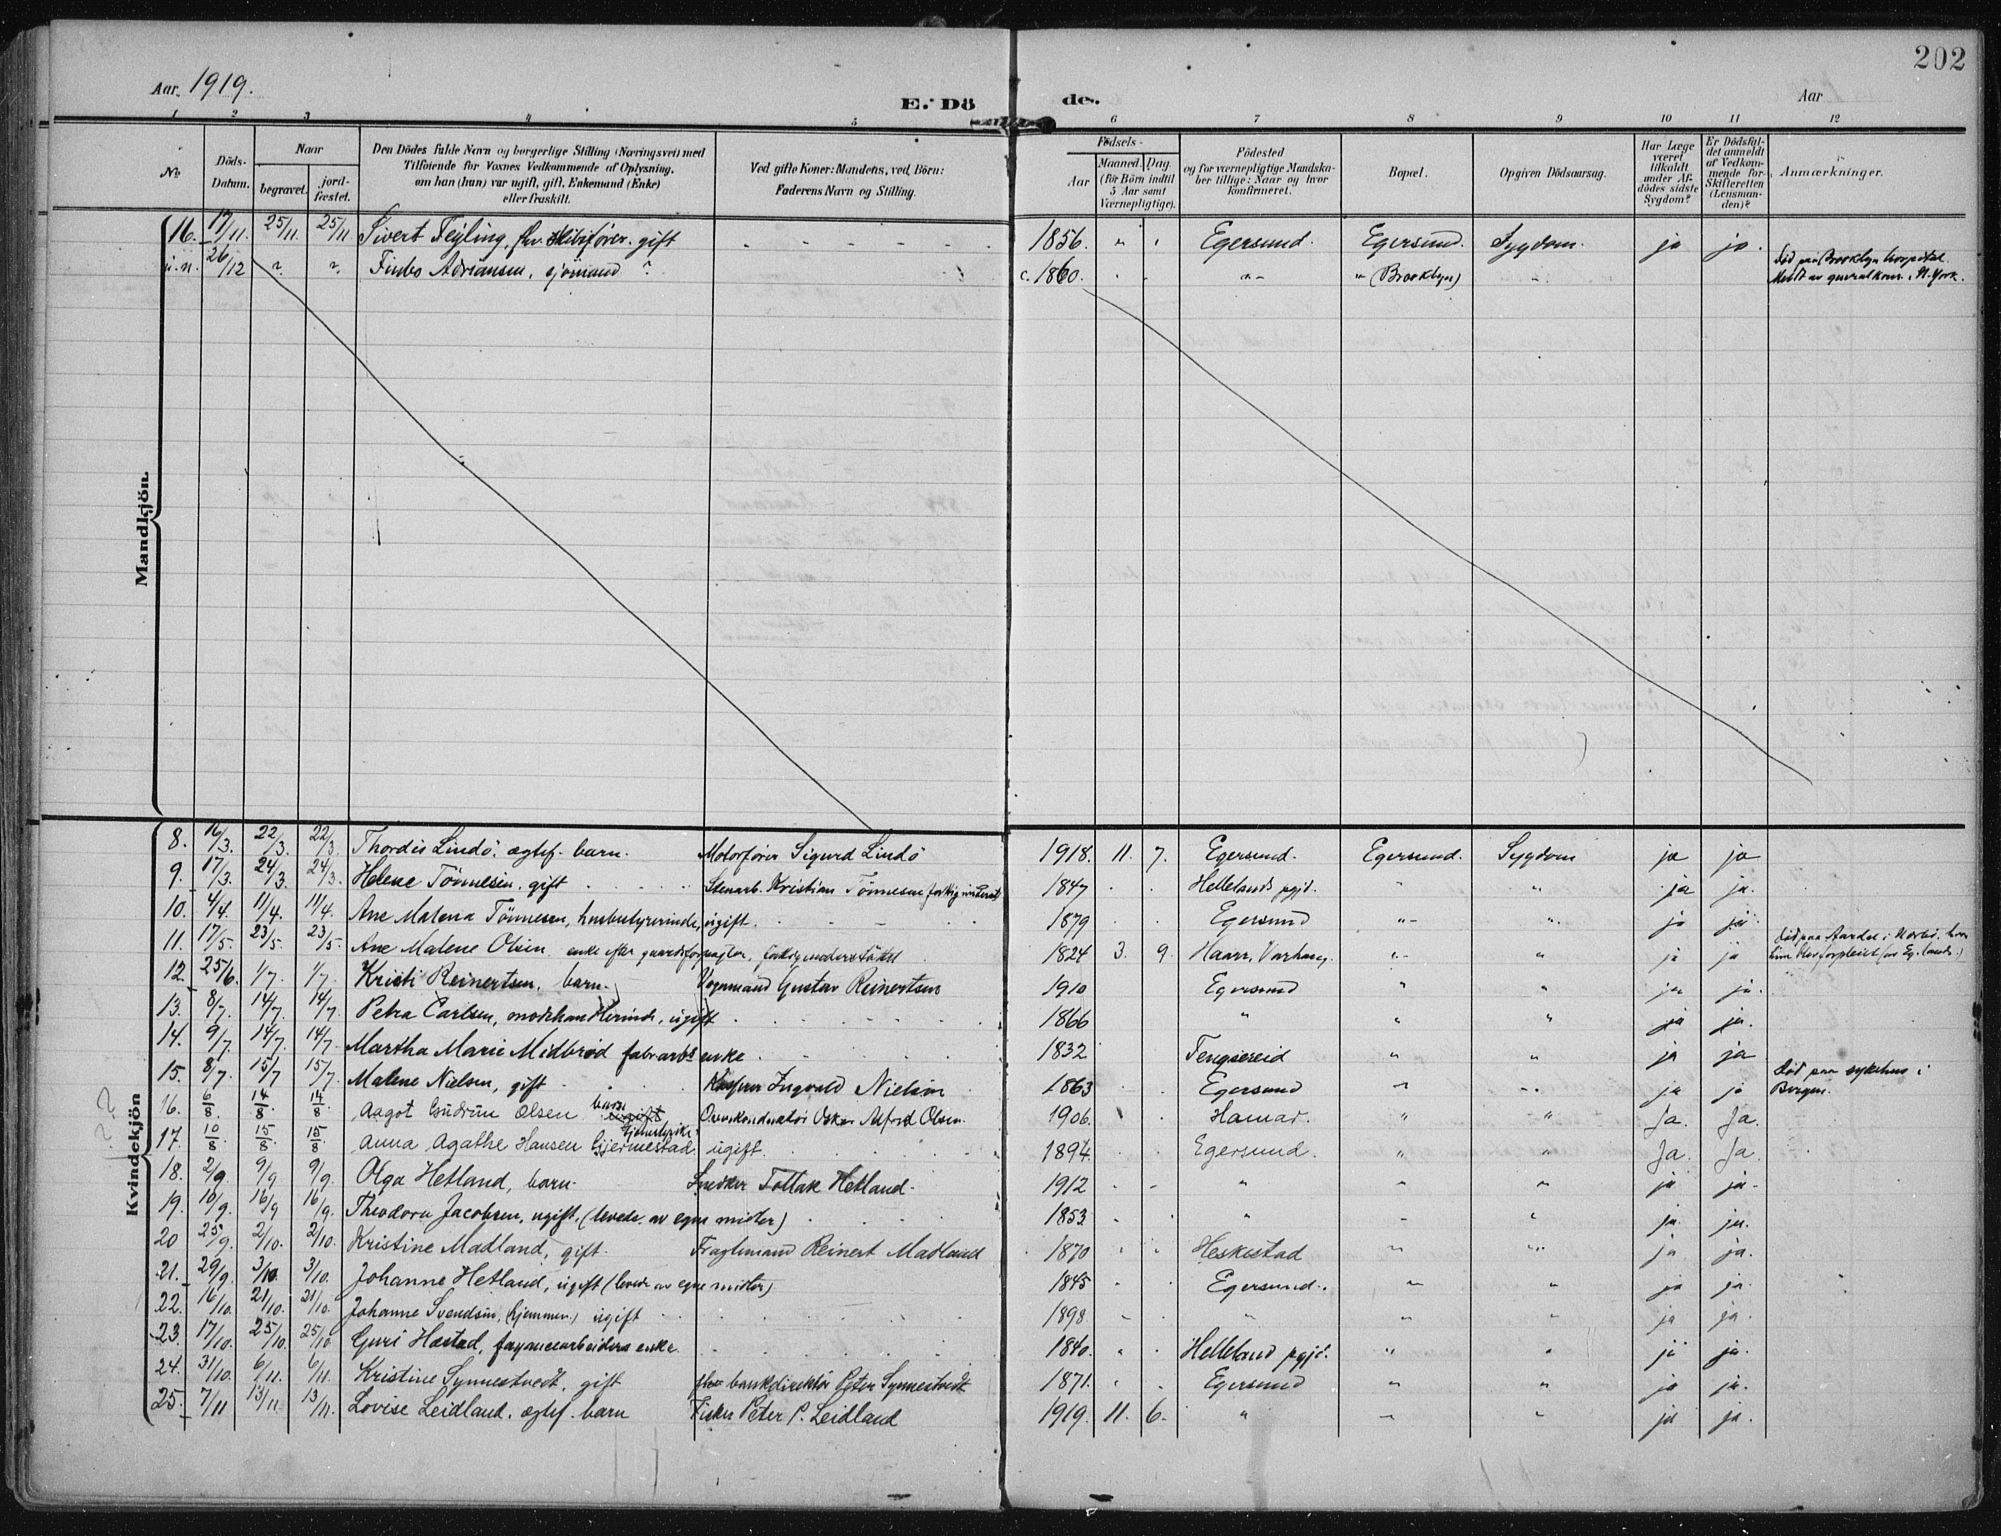 202
Aar 1919.
E. Dö de.
Aar
1 2 3 4 5 6 7 8 9 10 11 12
No.
Döds-Datum.
Naar
begravet.
jord-fæstet.
Den Dödes fulde Navn og borgerlige Stilling (Næringsvei) med
Tilföiende for Voxnes Vedkommende af Oplysning,
om han (hun) var ugift, gift, Enkemand (Enke)
eller fraskilt.
Ved gifte Koner: Mandens, ved Börn:
Faderens Navn og Stilling.
Födsels-
Aar
Maaned. Dag.
(för Börn indtil
5 Aar samt
Værnepligtige).
Födested
og for værnepligtige Mandska-
ber tillige: Naar og hvor
konfirmeret.
Bopæl.
Opgiven Dödsaarsag.
Har Læge
været
tilkaldt
under Af-
dödes sidste
Sygdom?
Er Dödsfal-
det anmeldt
af Vedkom-
mende for
Skifteretten
(Lensman-
den)?
Anmærkninger.
Mandkjön.
16. 17/11. 25/11. 25/11 Sivert Fejling, fhv. skibsfører. gift - - - - - - 1856 " " Egersund. Egersund. Sygdom. ja ja.
u.n. 26/12 ? ? Adriansen, sjömand ? c. 1860. - - "- "- (Brooklyn) -. Död paa Brooklyn hospital.
Meldt av generalkons. i N. York.
Kvindekjön
8. 16/3. 22/3. 22/3. Thordis Lindö. ægtef. barn. Motorfører Sigurd Lindö 1918. 11. 7. Egersund. Egersund. Sygdom ja ja
9. 17/3. 24/3. 24/3. Helene Tönnesen, gift Stenarb. Kristian Tönnesen 1847 Hellelands pgjd. " " ja ja.
10. 4/4. 11/4. 11/4. Ane Malena Tönnesen, husbestyrerinde, ugift. 1879 Egersund "- ". ja ja.
11. 17/5. 23/5. 23/5. Ane Malene Olsen enke efter gaardsforpagter, fattigunderstöttet 1824 3. 9. Haarr, Varhaug. "- " ja ja Död paa i
12. 25/6. 1/7. 1/7. Kristi Reinertsen, barn. Vognmand Gustav Reinertsen 1910 Egersund " " ja ja.
13. 8/7. 14/7. 14/7. Petra Carlsen, modehandlerinde, ugift 1866 " " " ja ja.
14. 9/7. 14/7. 14/7. Martha Marie Midbröd fabrarbs enke 1832 Tengsereid " " ja ja
15. 8/7. 15/7 15/7. Malene Nielsen, gift Ingvald Nielsen 1863 Egersund " ". ja ja Död paa sykehus i
Bergen.
16. 6/8. 14/8. 14/8 Aagot Gudrun Olsen barn ugift Overkonduktör Oskar Alfred Olsen 1906. Hamar. " " Ja. Ja.
17. 10/8 15/8. 15/8 Anna Agathe Hansen Gjermestad ugift. 1894. Egersund. " " Ja. Ja.
18. 2/9. 9/9 9/9. Olga Hetland, barn. Snedker Tollak Hetland. 1912 " " " ja ja.
19. 10/9. 16/9 16/9. Theodora Jacobsen, ugift. (levede av egne midler) 1853 " " " ja. ja.
20 25/9. 2/10. 2/10. Kristine Madland, gift. Fragtemand Reinert Madland 1870 Heskestad " " ja. ja.
21. 29/9. 3/10. 3/10. Johanne Hetland, ugift (levede av egne midler) 1845 Egersund. " " ja ja.
22. 16/10. 21/10. 21/10. Johanne Svendsen, (hjemmev.) ugift 1898 " " " ja ja.
23. 17/10. 25/10. 25/10 Guri Hæstad, fayancearbeiders enke. 1840. Helleland pgjd. " " ja ja.
24. 31/10. 6/11. 6/11. Kristine Synnestvedt, gift fhv. bankdirektör Peter Synnestvedt 1871. Egersund " " ja ja.
25. 7/11 13/11. 13/11. Lovise Leidland, ægtef. barn Fisker Peter P. Leidland 1919. 11. 6. " " " ja ja.